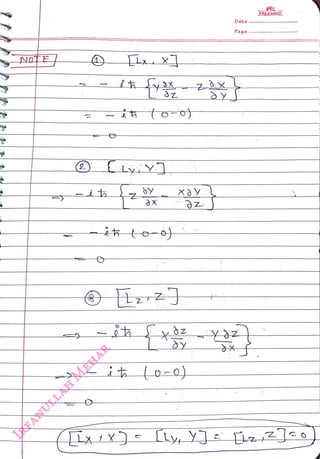 Date
Page
NOTE ① [Lx, x]
= - iħ {y ∂x/∂z - z ∂x/∂y}
= - iħ (0-0)
= 0
② [Ly, Y]
⇒ - iħ {z ∂y/∂x - x∂y/∂z}
= - iħ (0-0)
= 0
③ [Lz, Z]
⇒ - iħ {x ∂z/∂y - y∂z/∂x}
→ - iħ (0-0)
= 0
IRFANULLAH MEHAR
[Lx, x] = [Ly, Y] = [Lz, Z] = 0